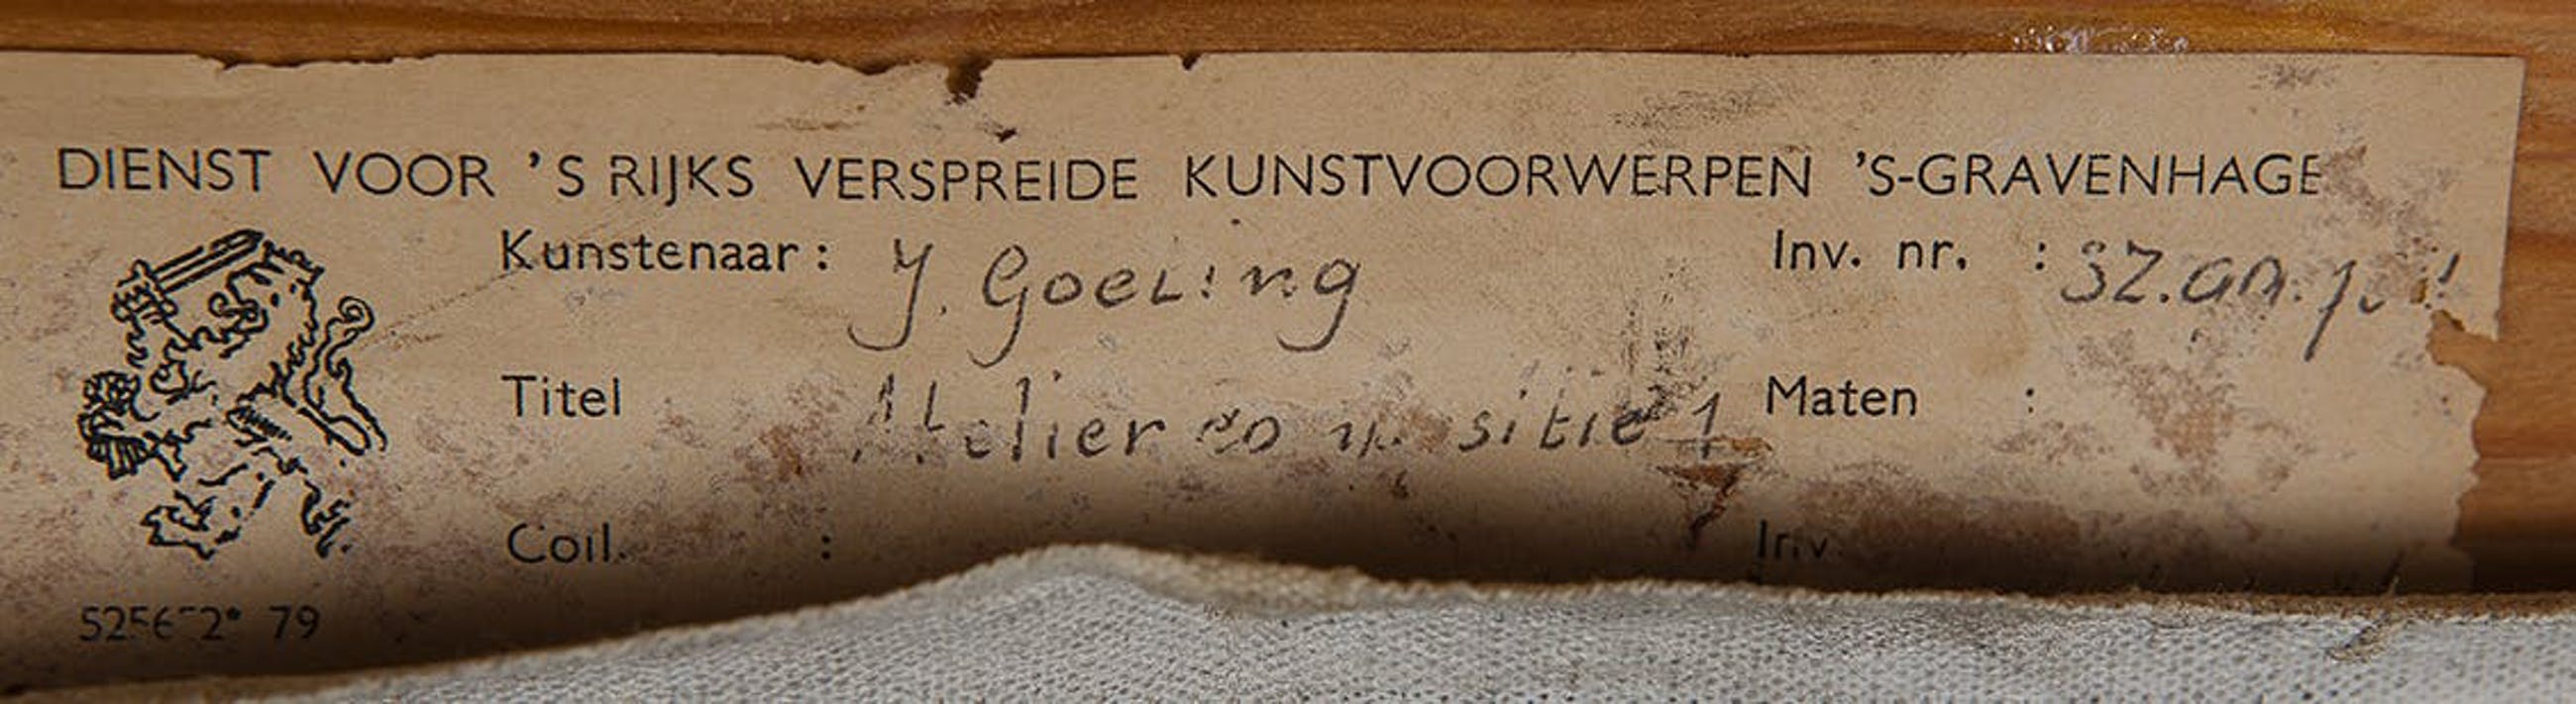 DIENST VOOR 'S RIJKS VERSPREIDE KUNSTVOORWERPEN 'S-GRAVENHAGE
Kunstenaar: J. Goeting Inv. nr. :
Titel Atelier 1 Maten :
Coll. : Inv.
79